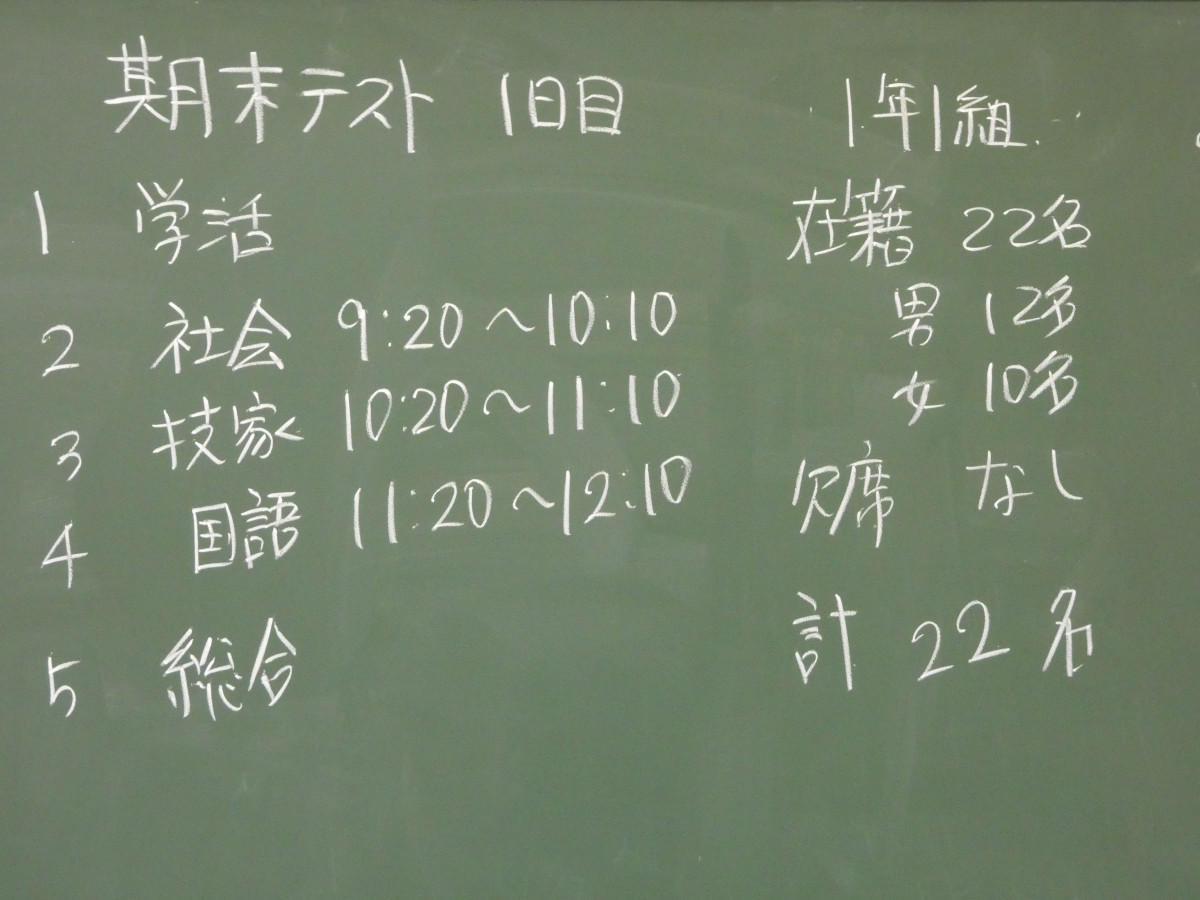 期末テスト 1日目
1 学活
2 社会 9:20～10:10
3 技家 10:20～11:10
4 国語 11:20～12:10
5 総合
1年1組
在籍 22名
男 12名
女 10名
欠席 なし
計 22名